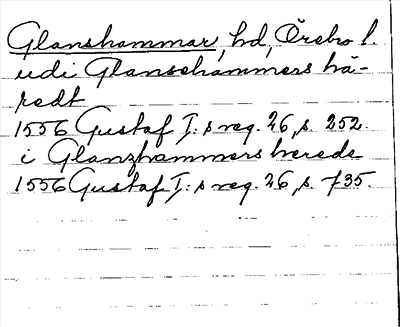 Glanshammar, hd, Örebro l.
udi Glanschammers hä-
redt
1556 Gustaf I:s reg. 26, s. 252.
i Glanzhammers herede
1556 Gustaf I:s reg. 26, s. 735.